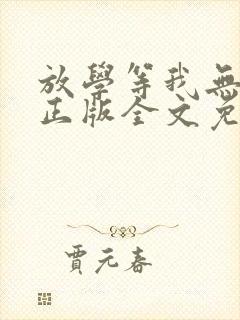 放學等我無
正版全文免
賈元春